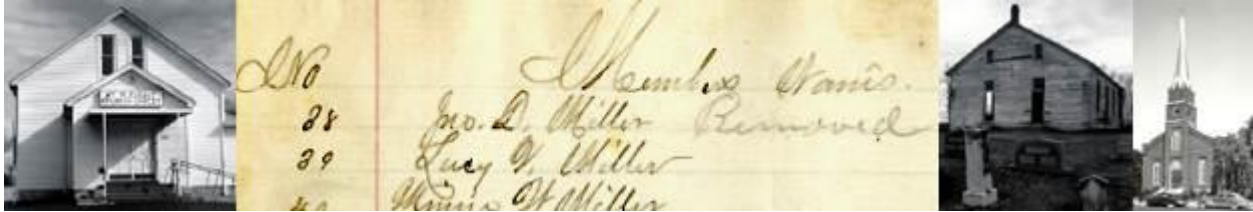 No Members Name.
38 Jno. D. Miller Removed
39 Lucy V. Miller
40 Minnie W. Miller